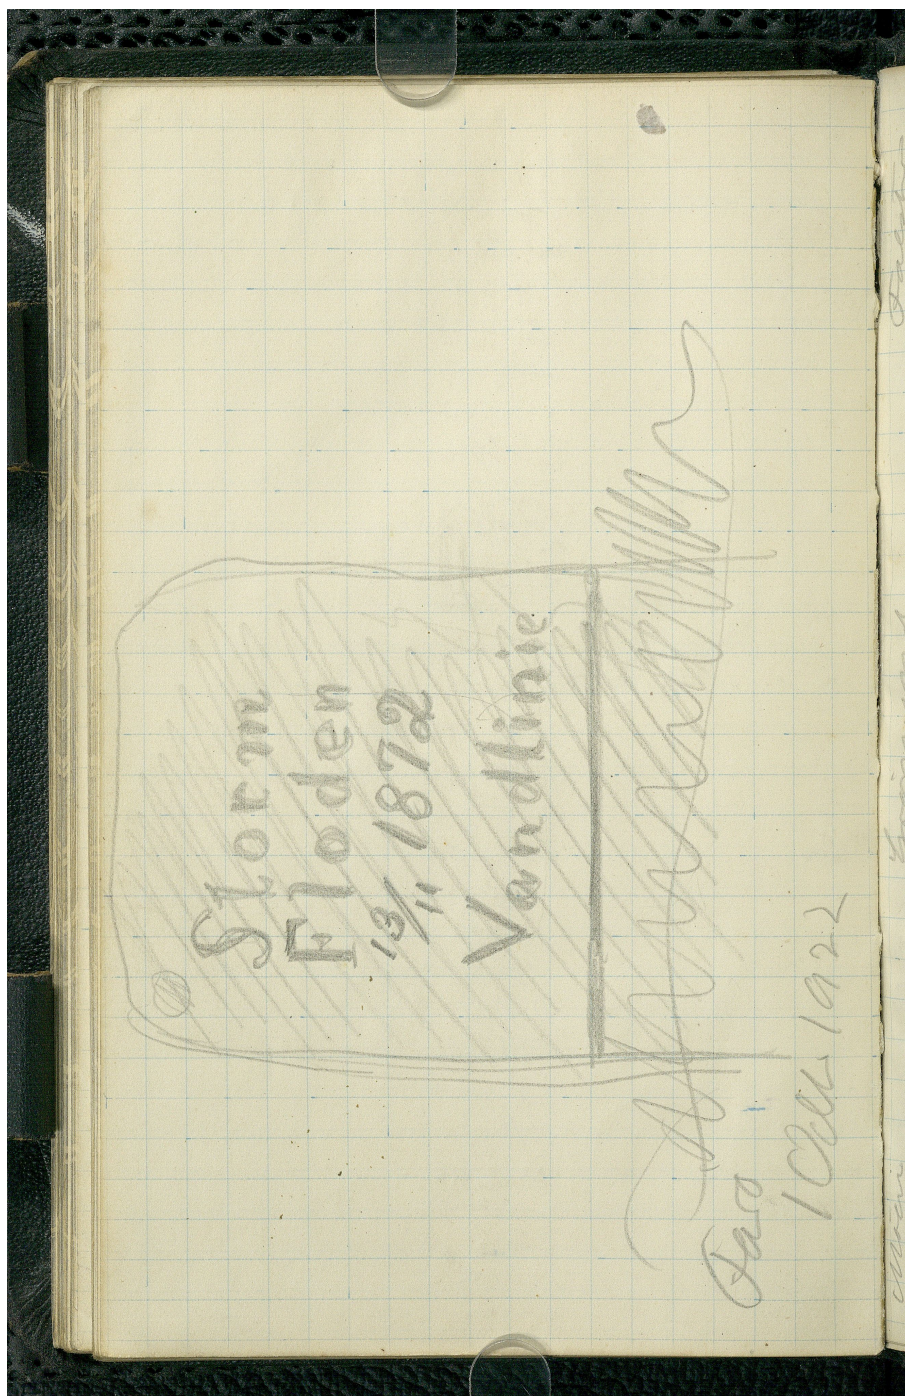 Storm
Floden
13/11 1872
Vandlinie
Farø
1 Oktr 1922